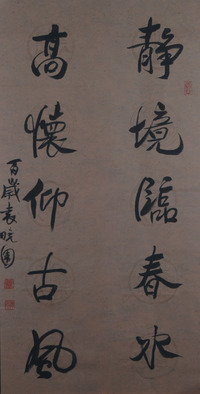 静境臨春水
高懷仰古風
百歲袁晓園